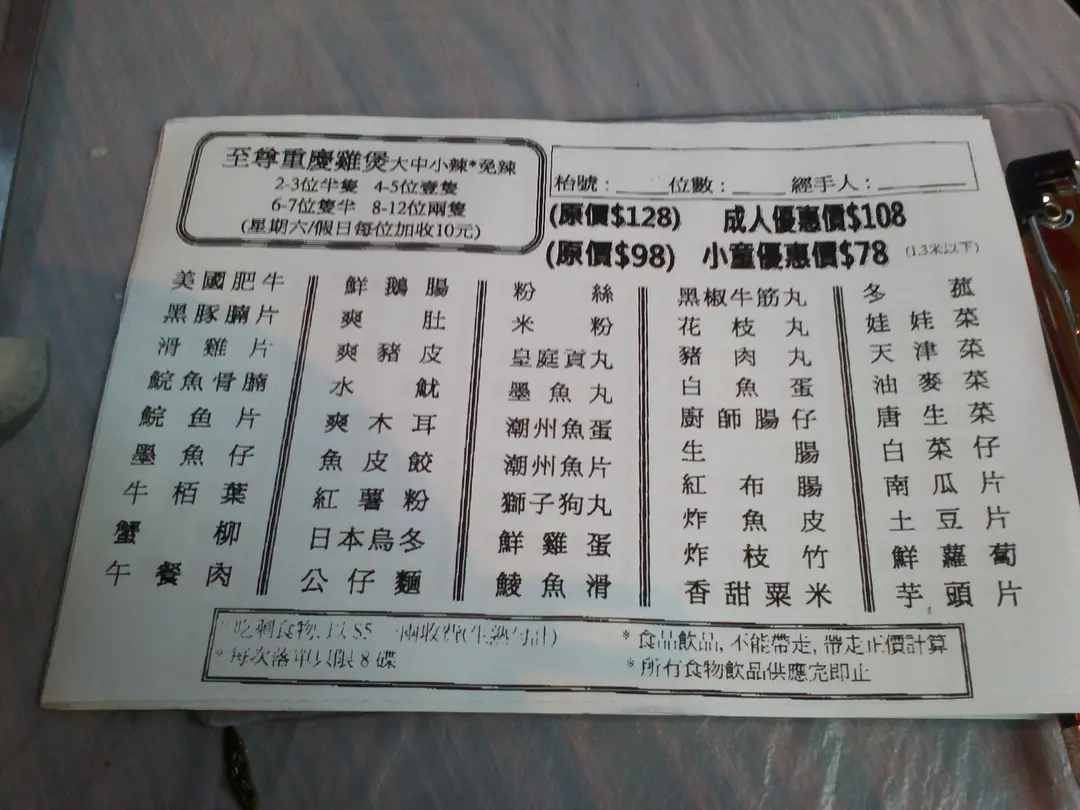 至尊重慶雞煲大中小辣*免辣
2-3位半隻 4-5位壹隻
6-7位隻半 8-12位兩隻
(星期六/假日每位加收10元)
枱號: 位數: 經手人:
(原價$128) 成人優惠價$108
(原價$98) 小童優惠價$78 (1.3米以下)
美國肥牛
黑豚腩片
滑雞片
鯇魚骨腩
鯇鱼片
墨魚仔
牛栢葉
蟹柳
午餐肉
鮮鵝腸
爽肚
爽豬皮
水魷
爽木耳
魚皮餃
紅薯粉
日本烏冬
公仔麵
粉絲
米粉
皇庭貢丸
墨魚丸
潮州魚蛋
潮州魚片
獅子狗丸
鮮雞蛋
鯪魚滑
黑椒牛筋丸
花枝丸
豬肉丸
白魚蛋
廚師腸仔
生腸
紅布腸
炸魚皮
炸枝竹
香甜粟米
冬菰
娃娃菜
天津菜
油麥菜
唐生菜
白菜仔
南瓜片
土豆片
鮮蘿蔔
芋頭片
*吃剩食物, 以$5 一兩收費(生熟均計)
*每次落單只限8碟
*食品飲品, 不能帶走, 帶走正價計算
*所有食物飲品供應完即止